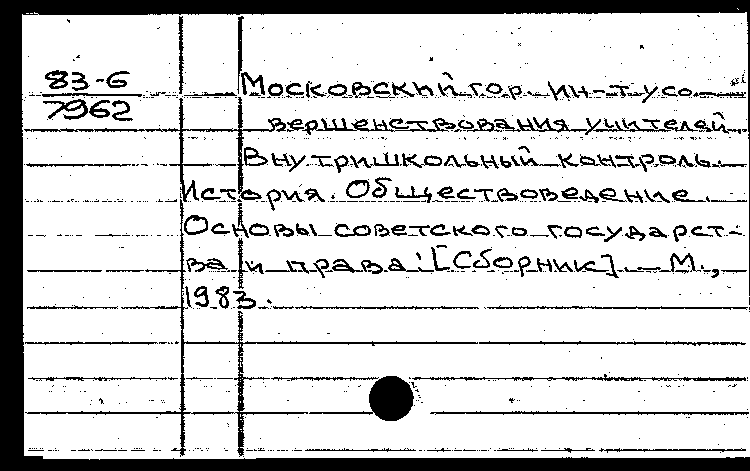 83-6
7962
Московский гор. ин-т усо-
вершенствования учителей
Внутришкольный контроль.
История. Обществоведение.
Основы советского государст-
ва и права: [Сборник]. — М.,
1983.